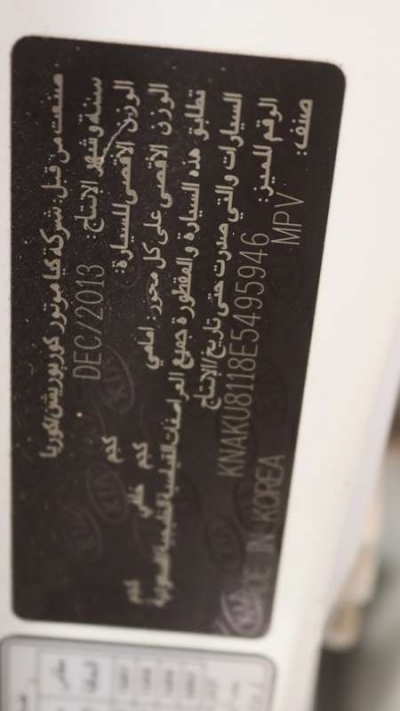 صنعت من قبل: شركة كيا موتورز كوربوريشن/كوريا
سنة وشهر الإنتاج: DEC/2013
الوزن الأقصى للسيارة: كجم
الوزن الأقصى على كل محور: امامي كجم خلفي كجم
تطابق هذه السيارة والمقطورة جميع المواصفات القياسية الخليجية السعودية
للسيارات والتي صدرت حتى تاريخ الإنتاج
الرقم المميز: KNAKU8118E5495946
صنف: MPV
KIA MADE IN KOREA